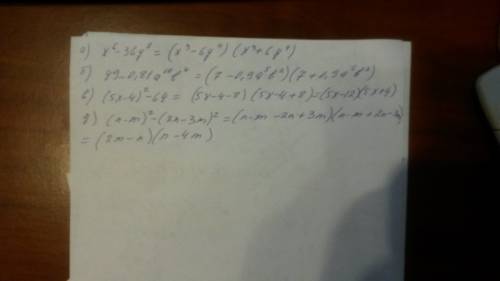 а) x⁶-36y⁸=(x³-6y⁴)(x³+6y⁴)
б) 49-0,81a¹⁰b⁴=(7-0,9a⁵b²)(7+0,9a⁵b²)
в) (5x-4)²-64=(5x-4-8)(5x-4+8)=(5x-12)(5x+4)
д) (n-m)²-(2n-3m)²=(n-m-2n+3m)(n-m+2n-3m)
=(2m-n)(n-4m)